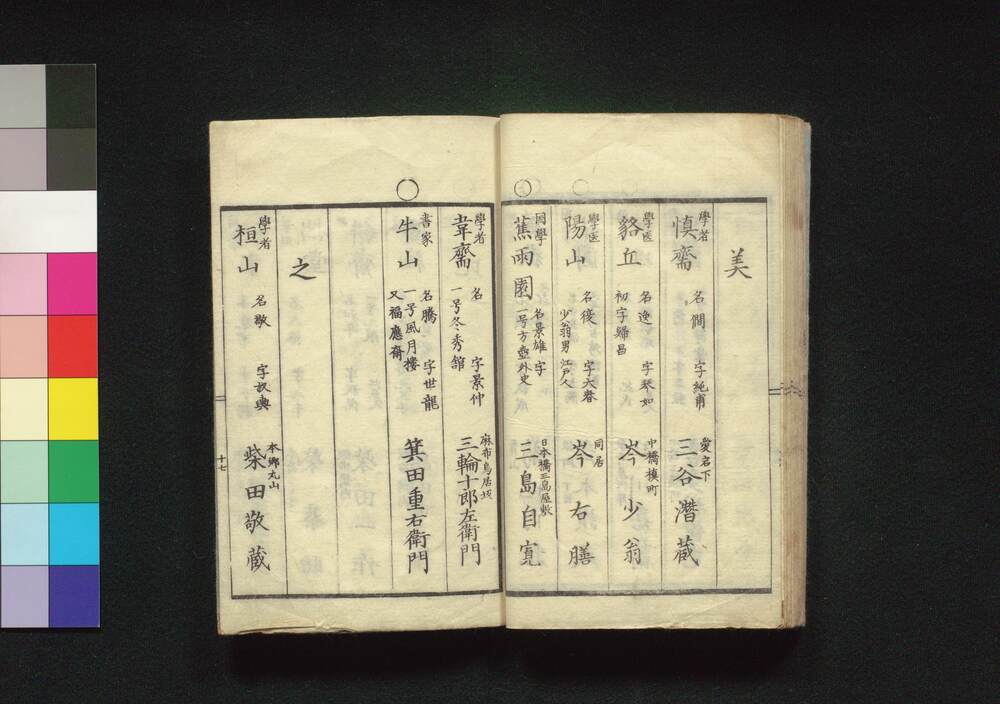 美
學者
慎齋
名僩 字純甫
愛宕下
三谷潛蔵
學医
貉丘
名逸 字琴如
初字歸昌
中橋槙町
岑少翁
學医
陽山
字天春
少翁男 江戸人
同居
岑右膳
国學
蕉雨園
名景雄 字
一号方壺外史
日本橋三島屋敷
三島自寛
學者
韋齋
名 字景仲
一号冬秀舘
麻布鳥居坂
三輪十郎左衛門
書家
牛山
名騰 字世龍
一号風月樓
又福應齋
箕田重右衛門
之
學者
桓山
名敬 字叔輿
本郷丸山
柴田敬蔵
十七